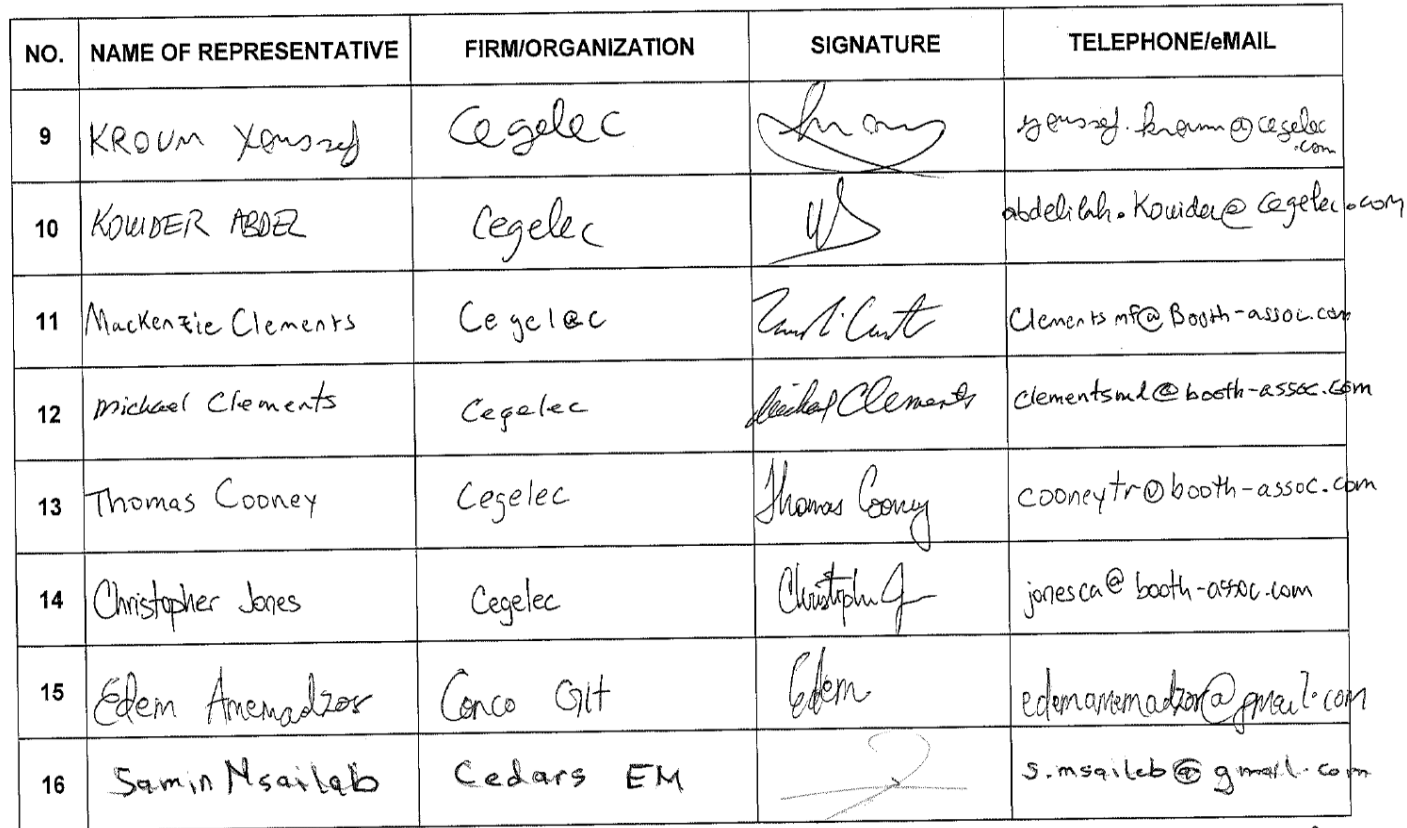 NO. NAME OF REPRESENTATIVE FIRM/ORGANIZATION SIGNATURE TELEPHONE/eMAIL
9 KROUM Youssef Cegelec youssef.kroum@cegelec
.com
10 KOUIDER ABDEL Cegelec abdelilah.Kouider@cegelec.com
11 Mackenzie Clements Cegelec Clementsmf@Booth-assoc.com
12 Michael Clements Cegelec Michael Clements clementsmd@booth-assoc.com
13 Thomas Cooney Cegelec Thomas Cooney cooneytr@booth-assoc.com
14 Christopher Jones Cegelec jonesca@booth-assoc.com
15 Edem Amemadzor Conco Edem edemamemadzor@gmail.com
16 Samin Msaileb Cedars EM s.msaileb@gmail.com